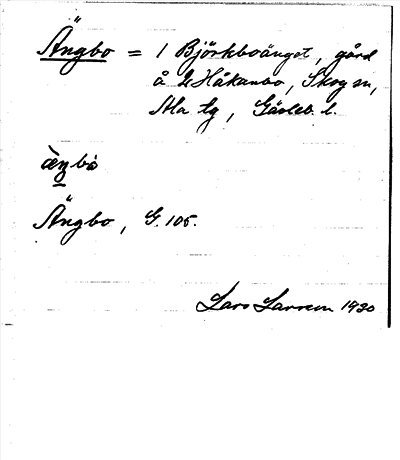 Ängbo = 1 Björkboänget, gård
å 2 Håkanbo, Skog sn,
Ala tg, Gävleb. l.
æ̀ŋbo
Ängbo, G. 105.
Lars Larsson 1930